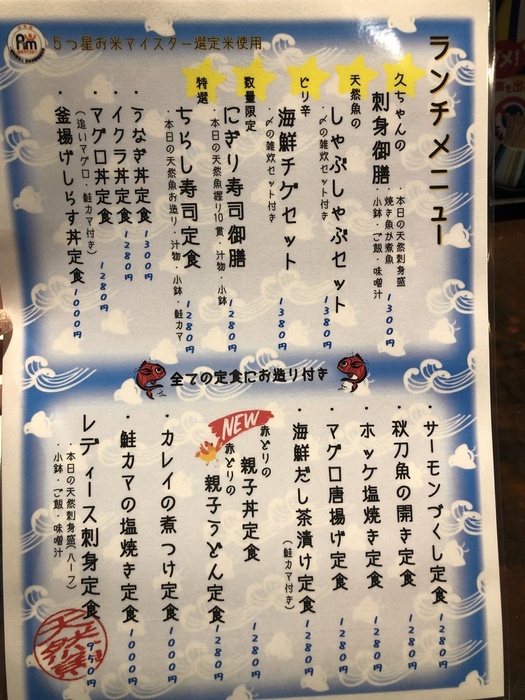 ランチメニュー
５つ星お米マイスター選定米使用
久ちゃんの
刺身御膳
・本日の天然刺身盛
焼き魚か煮魚
・小鉢・ご飯・味噌汁
１３００円
天然魚の
しゃぶしゃぶセット
・〆の雑炊セット付き
１３８０円
ピリ辛
海鮮チゲセット
・〆の雑炊セット付き
１３８０円
数量限定
にぎり寿司御膳
・本日の天然魚握り10貫・汁物・小鉢
１２８０円
特選
ちらし寿司定食
・本日の天然魚お造り・汁物・小鉢・鮭カマ
１２８０円
・うなぎ丼定食 １３００円
・イクラ丼定食 １２８０円
・マグロ丼定食 １２８０円
(追いマグロ・鮭カマ付き)
・釜揚げしらす丼定食 １０００円
全ての定食にお造り付き
・サーモンづくし定食 １２８０円
・秋刀魚の開き定食 １２８０円
・ホッケ塩焼き定食 １２８０円
・マグロ唐揚げ定食 １２８０円
・海鮮だし茶漬け定食 １２８０円
(鮭カマ付き)
NEW
赤どりの
親子丼定食 １２８０円
赤どりの
親子うどん定食 １２８０円
・カレイの煮つけ定食 １０００円
・鮭カマの塩焼き定食 １０００円
レディース刺身定食 ９５０円
・本日の天然刺身盛(ハーフ)
・小鉢・ご飯・味噌汁